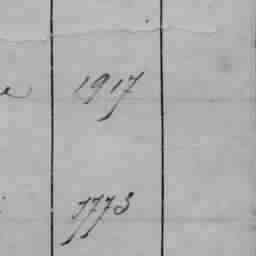 e 1917
1773